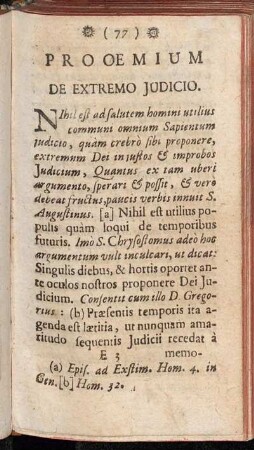 ( 77 )
PROOEMIUM
DE EXTREMO JUDICIO.
NIhil est ad salutem homini utilius
communi omnium Sapientum
judicio, quàm crebrò sibi proponere,
extremum Dei in justos & improbos
Judicium, Quantus ex tam uberi
argumento, sperari & possit, & verò
debeat fructus, paucis verbis innuit S.
Augustinus. [a] Nihil est utilius po-
pulis quàm loqui de temporibus
futuris. Imò S. Chrysostomus adeò hoc
argumentum vult inculcari, ut dicat:
Singulis diebus, & hortis oportet an-
te oculos nostros proponere Dei Ju-
dicium. Consentit cum illo D. Grego-
rius: (b) Præsentis temporis ita a-
genda est lætitia, ut nunquam ama-
ritudo sequentis Judicii recedat à
E 3 memo-
(a) Epis. ad Exstim. Hom. 4. in
Gen. [b] Hom. 32.